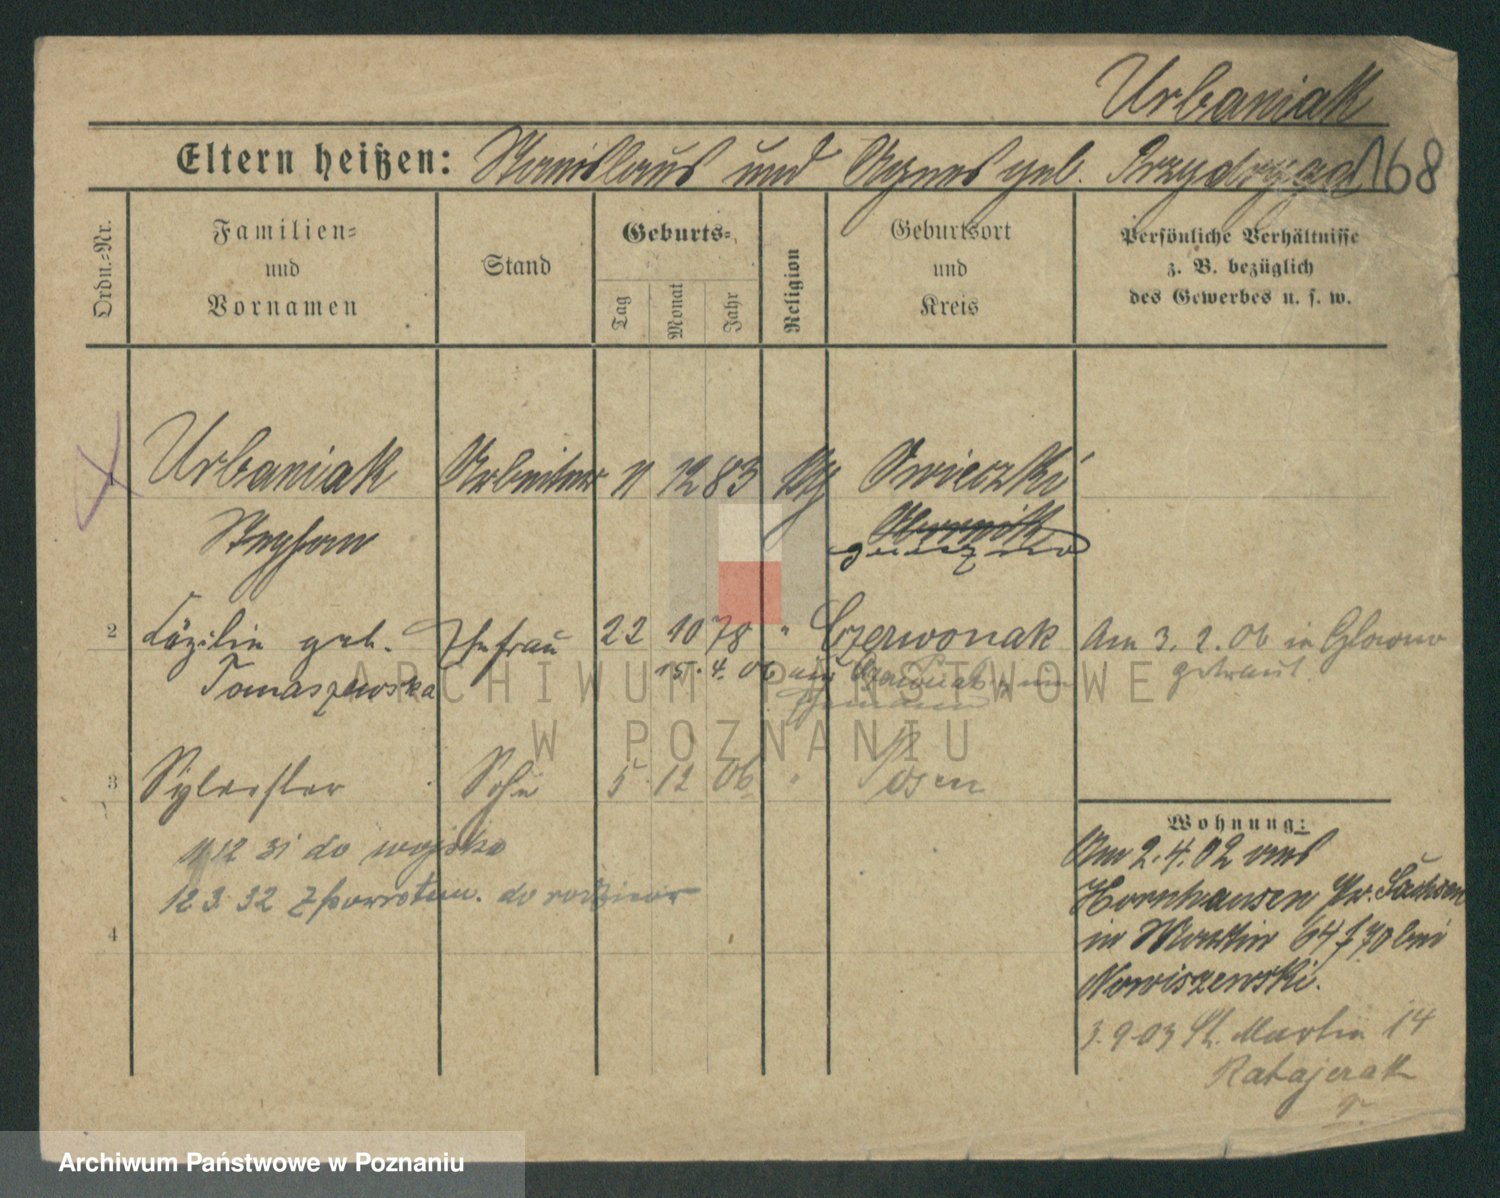 Urbaniak
Eltern heißen: Stanislaus und Agnes geb. Przydryga
168
Ordn.-Nr.
Familien-
und
Vornamen
Stand
Geburts-
Tag
Monat
Jahr
Religion
Geburtsort
und
Kreis
Persönliche Verhältnisse
z. B. bezüglich
des Gewerbes u. s. w.
Urbaniak Arbeiter 11 12 83 Owieczki
Stephan
Gniezno
2 Cäzilie geb. Ehefrau 22 10 78 " Czerwonak Am 3. 2. 06 in Glowno
Tomaszewska 15. 4. 06 aus Czerwonak zum getraut
Ehemann
3 Sylvester Sohn 5 12 06 " Posen
11 12 31 do wojska
12 3. 32 z powrotem. do
4
Wohnung:
Am 2. 4. 02 aus
Hornhausen Pr. Sachsen
in Martin 64 f 70 bei
Nowiszewski.
3. 9. 03 St. Martin 14
Ratajczak
ARCHIWUM PAŃSTWOWE
W POZNANIU
Archiwum Państwowe w Poznaniu